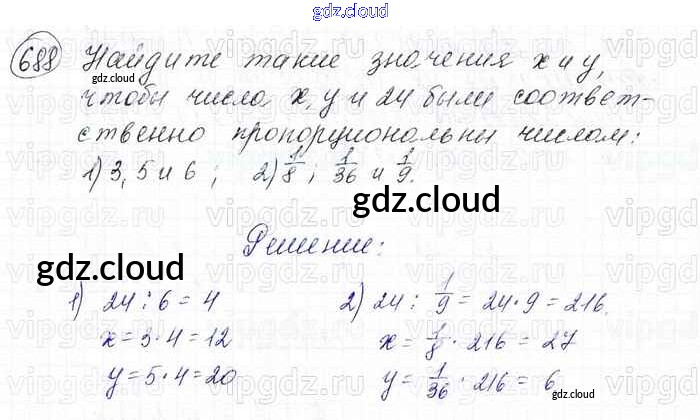 gdz.cloud
688 Найдите такие значения x и y,
gdz.cloud
чтобы числа x, y и 24 были соответ-
ственно пропорциональны числам:
1) 3, 5 и 6 ; 2) 1/8 ; 1/36 и 1/9.
gdz.cloud
Решение:
gdz.cloud
1) 24 : 6 = 4 2) 24 : 1/9 = 24 · 9 = 216.
x = 3 · 4 = 12 x = 1/8 · 216 = 27
gdz.cloud
y = 5 · 4 = 20 y = 1/36 · 216 = 6
gdz.cloud